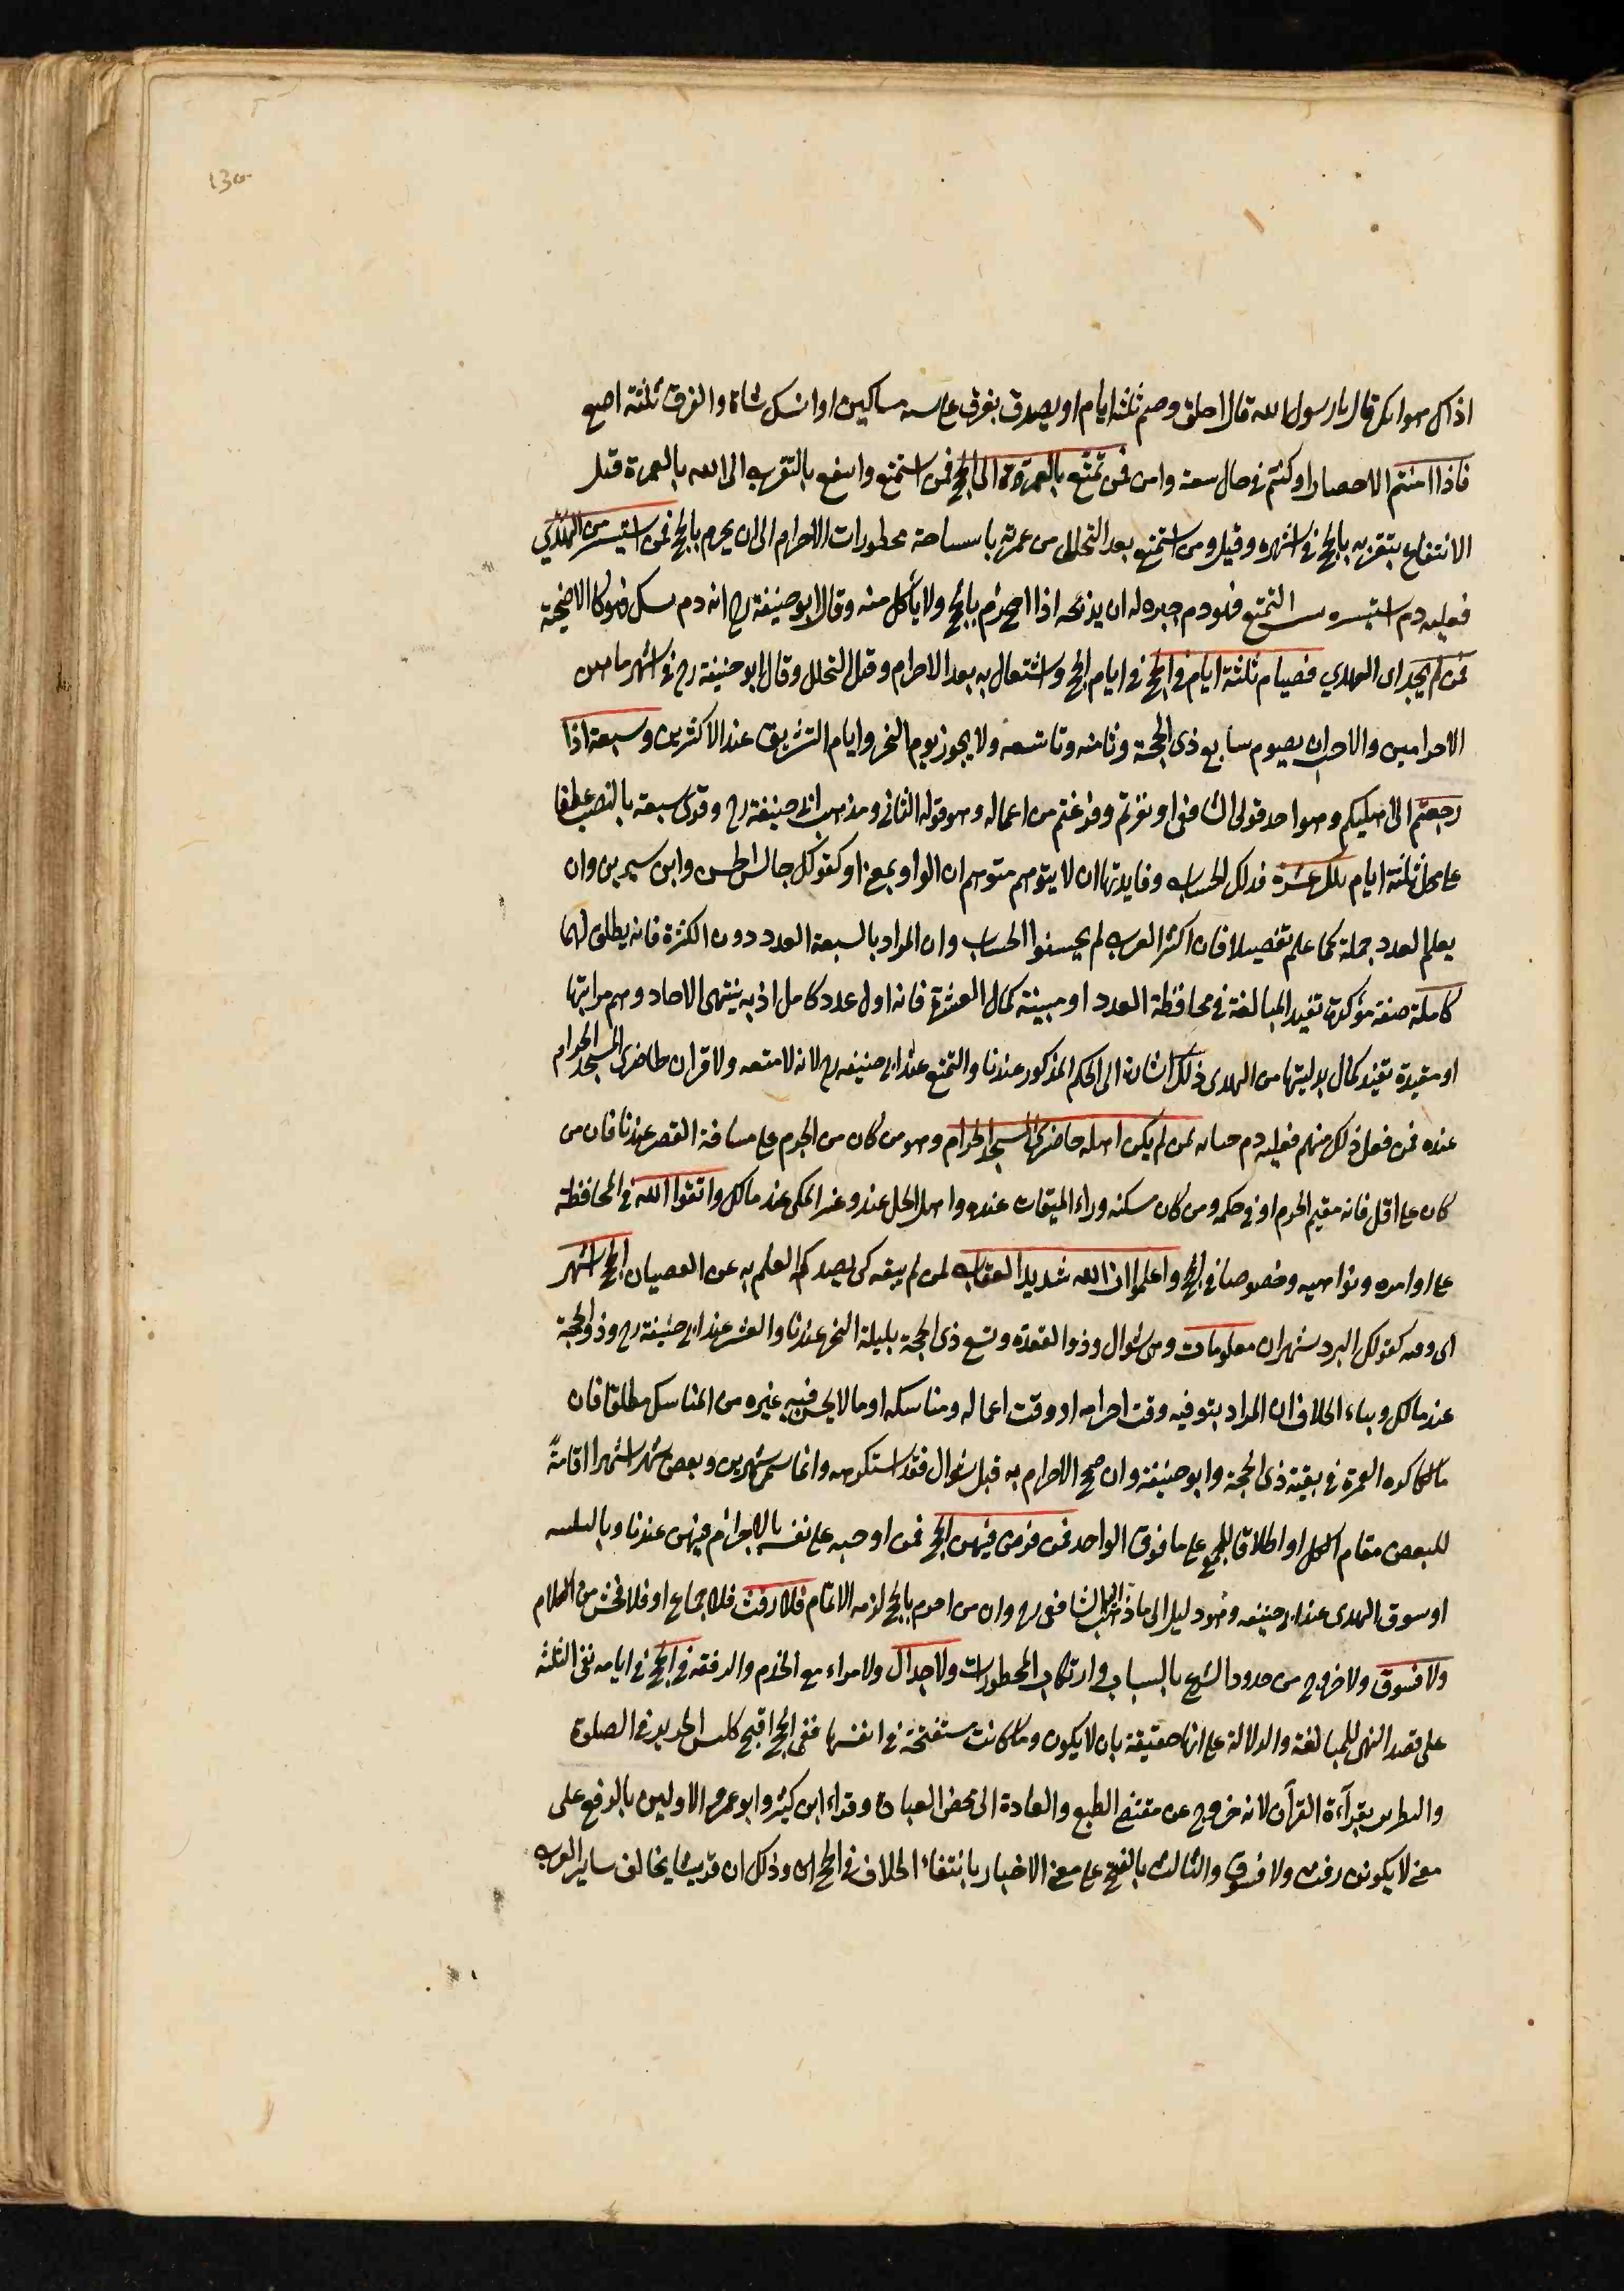 130
اذاك هوامك قال يا رسول الله قال احلق وصم ثلثة ايام او تصدق بفرق على ستة مساكين او انسك شاة والفرق ثلثة اصع
فاذا امنتم الاحصار او كنتم في حال سعة وامن فمن تمتع بالعمرة الى الحج فمن استمتع وانتفع بالتقرب الى الله بالعمرة قبل
الانتفاع بتقربه بالحج في اشهره وقيل ومن استمتع بعد التحلل من عمرته باستباحة محظورات الاحرام الى ان يحرم بالحج فما استيسر من الهدي
فعليه دم استيسره بسبب التمتع فهو دم جبران يذبحه اذا احرم بالحج ولا يأكل منه وقال ابو حنيفة رح انه دم نسك فهو كالاضحية
فمن لم يجد اى الهدي فصيام ثلثة ايام في الحج في ايام الحج والاشتغال به بعد الاحرام وقبل التحلل وقال ابو حنيفة رح في اشهره ما بين
الاحرامين والاحب ان يصوم سابع ذى الحجة وثامنه وتاسعه ولا يجوز يوم النحر وايام التشريق عند الاكثرين وسبعة اذا
رجعتم الى اهليكم وهو احد قولى الشافعى او نفرتم وفرغتم من اعماله وهو قوله الثانى ومذهب ابى حنيفة رح وقرئ سبعة بالنصب عطفا
على محل ثلثة ايام تلك عشرة فذلك الحساب وفايدتها ان لا يتوهم متوهم ان الواو بمعنى او كقولك جالس الحسن وابن سيرين وان
يعلم العدد جملة كما علم تفصيلا فان اكثر العرب لم يحسنوا الحساب وان المراد بالسبعة العدد دون الكثرة فانه يطلق لهما
كاملة صفة مؤكدة تفيد المبالغة في محافظة العدد او مبينة كمال العشرة فانه اول عدد كامل اذ به ينتهى الاحاد وتم مراتبها
او مقيدة تقيد كمال بدليتها من الهدى ذلك اشارة الى الحكم المذكور عندنا والتمتع عند ابى حنيفة رح لانه لا متعة ولا قران لحاضرى المسجد الحرام
عنده فمن فعل ذلك منهم فعليه دم جناية لمن لم يكن اهله حاضرى المسجد الحرام وهو من كان من الحرم على مسافة القصر عندنا فان من
كان على اقل فانه مقيم الحرم او في حكمه ومن كان مسكنه وراء الميقات عنده واهل الحل عند وغير المكى عند مالك واتقوا الله في المحافظة
على اوامره ونواهيه وخصوصا في الحج واعلموا ان الله شديد العقاب لمن لم يتقه كى يصدكم العلم به عن العصيان الحج اشهر
اى وقته كقولك البرد شهران معلومات وهى شوال وذو القعدة وتسع ذى الحجة بليلة النحر عندنا والعشر عند ابى حنيفة رح وذو الحجة
عند مالك وبناء الخلاف ان المراد بتوقيته وقت احرامه او وقت اعماله ومناسكه او ما لا يحسن فيه غيره من المناسك مطلقا فان
مالكا كره العمرة في بقية ذى الحجة وابو حنيفة وان صح الاحرام به قبل شوال فقد استكرهه وانما سمى شهرين وبعض شهر اشهرا اقامةً
للبعض مقام الكل او اطلاقا للجمع على ما فوق الواحد فمن فرض فيهن الحج فمن اوجبه على نفسه بالاحرام فيهن عندنا وبالتلبية
او سوق الهدى عند ابى حنيفة وهو دليل الى ما ذهب اليه الشافعى رح وان من احرم بالحج لزمه الاتمام فلا رفث فلا جماع او فلا فحش من الكلام
ولا فسوق ولا خروج من حدود الشرع بالسباب وارتكاب المحظورات ولا جدال ولا مراء مع الخدم والرفقة في الحج في ايامه نفى الثلثة
على قصد النهى للمبالغة والدلالة على انها حقيقة بان لا يكون وما كانت مستقبحة في انفسها ففى الحج اقبح كلبس الحرير في الصلوة
والتطريب بقرآءة القرآن لانه خروج عن مقتضى الطبع والعادة الى محض العبادة وقراء ابن كثير وابو عمرو الاولين بالرفع على
معنى لا يكونن رفث ولا فسوق والثالث بالفتح على معنى الاخبار بانتفاء الخلاف في الحج اى وذلك ان قريشا يخالف ساير العرب